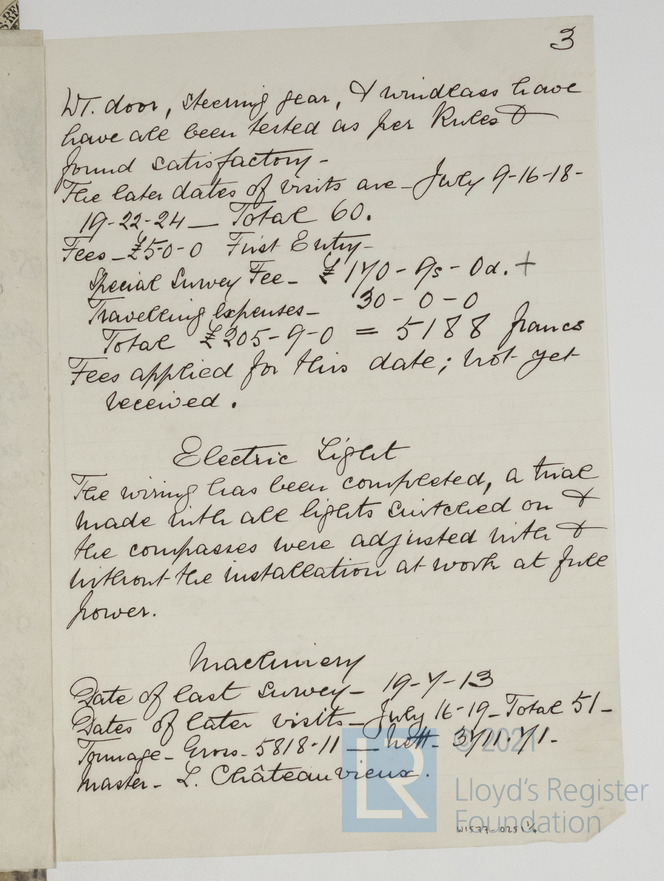 3
WT. door, steering gear, & windlass have
have all been tested as per Rules &
found satisfactory -
The later dates of visits are - July 9-16-18-
19-22-24 — Total 60.
Fees - £5-0-0 First Entry -
Special Survey Fee - £170-9s-0d. +
Travelling Expenses - 30-0-0
Total £205-9-0 = 5188 francs
Fees applied for this date; not yet
received.
Electric Light
The wiring has been completed, a trial
made with all lights switched on &
the compasses were adjusted with &
without the installation at work at full
power.
Machinery
Date of last survey - 19-7-13
Dates of later visits - July 16-19 - Total 51 -
Tonnage - Gross - 5818.11 — Nett -
Master - L. Châteauvieux.
© 2021
LR
Lloyd's Register
Foundation